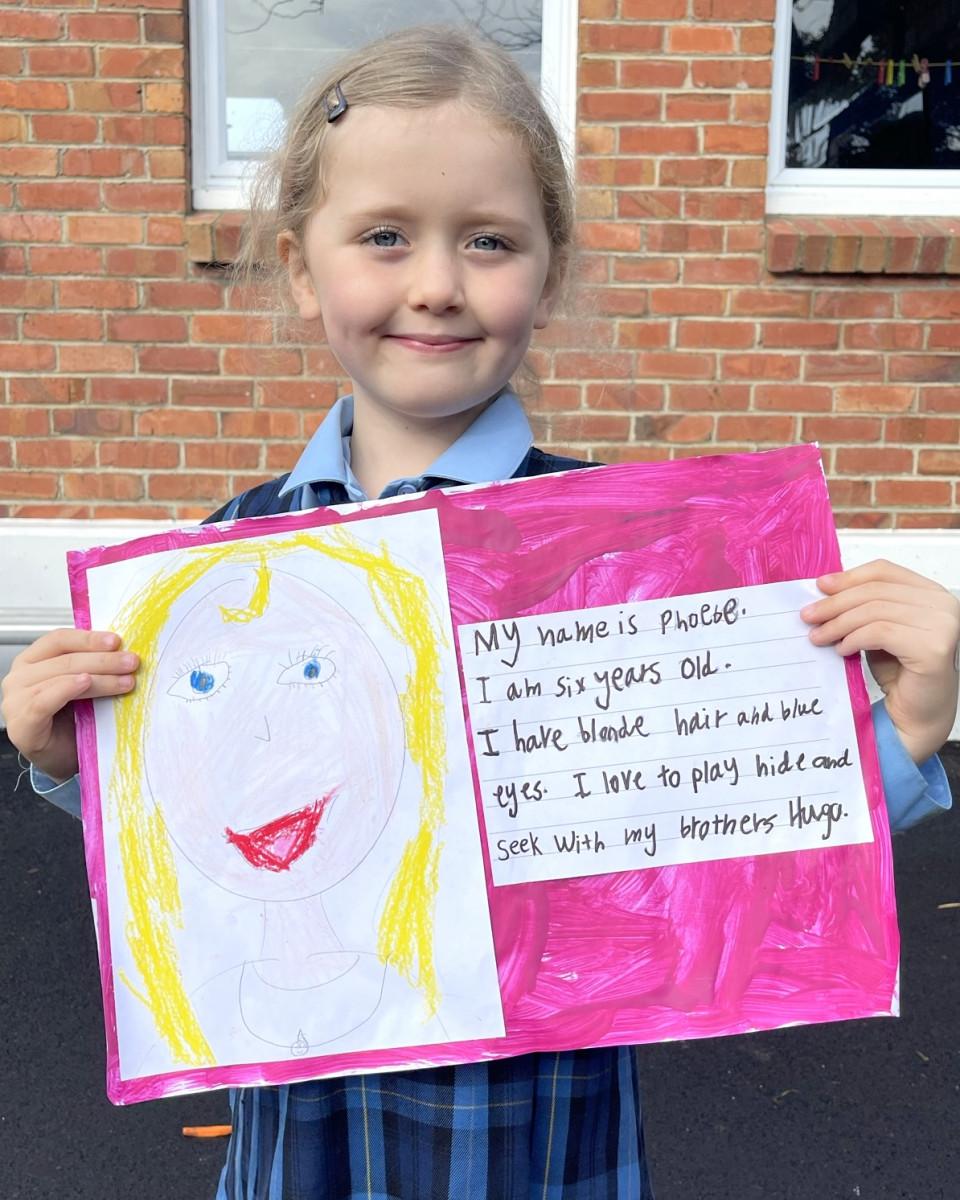 My name is Phoebe.
I am six years old.
I have blonde hair and blue
eyes. I love to play hide and
seek with my brothers Hugo.